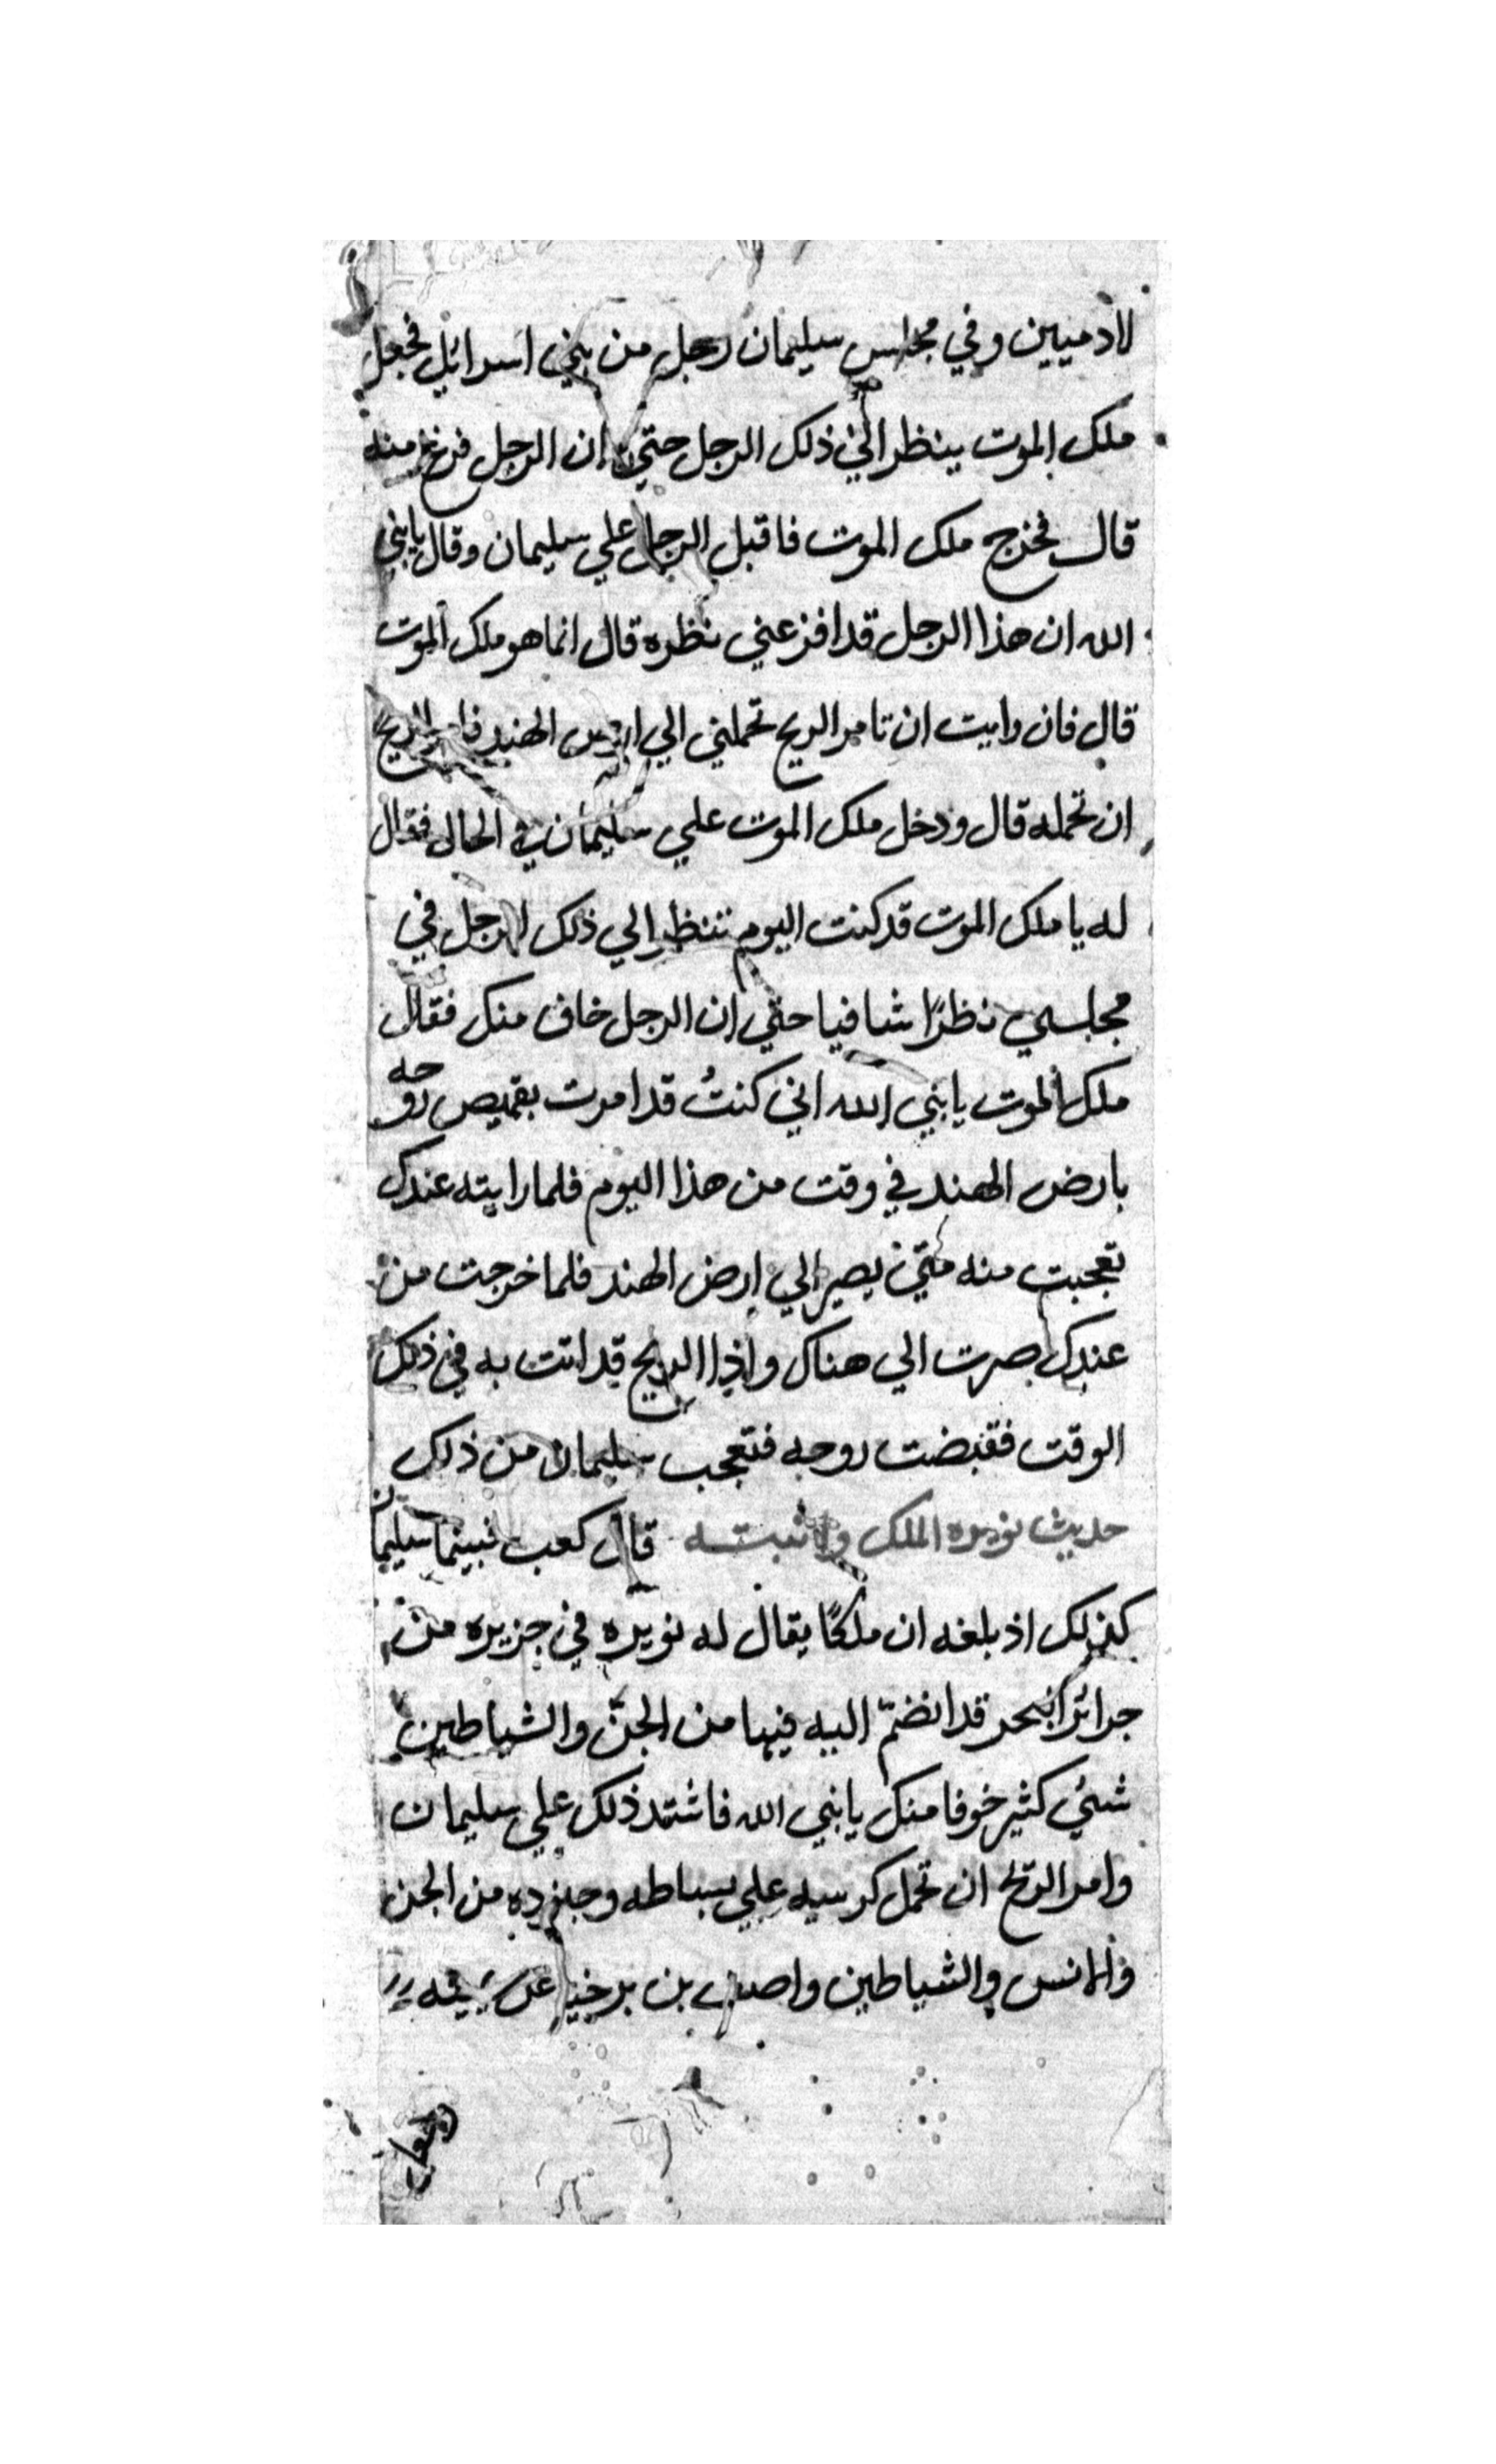 لادميين وفي مجلس سليمان رجل من بني اسرائيل فجعل
ملك الموت ينظر الي ذلك الرجل حتي ان الرجل فزع منه
قال فخرج ملك الموت فاقبل الرجل علي سليمان وقال يانبي
الله ان هذا الرجل قد افزعني نظره قال انما هو ملك الموت
قال فان رايت ان تامر الريح تحملني الي ارض الهند فامر الريح
ان تحمله قال ودخل ملك الموت علي سليمان في الحال فقال
له يا ملك الموت قد كنت اليوم تنظر الي ذلك الرجل في
مجلسي نظرًا شافيا حتي ان الرجل خاف منك فقال
ملك الموت يا نبي الله اني كنتُ قد امرت بقميص روحه
بارض الهند في وقت من هذا اليوم فلما رايته عندك
تعجبت منه متي يصير الي ارض الهند فلما خرجت من
عندك صرت الي هناك واذا الريح قد اتت به في ذلك
الوقت فقبضت روحه فتعجب سليمان من ذلك
حديث نويره الملك وابنته قال كعب فبينما سليمان
كذلك اذ بلغه ان ملكًا يقال له نويره في جزيره من
جرائر البحر قد انضمّ اليه فيها من الجنّ والشياطين
شئي كثير خوفا منك يا نبي الله فاشتد ذلك علي سليمان
وامر الريح ان تحمل كرسيه علي بساطه وجنوده من الجن
والانس والشياطين واصف بن برخيا عن